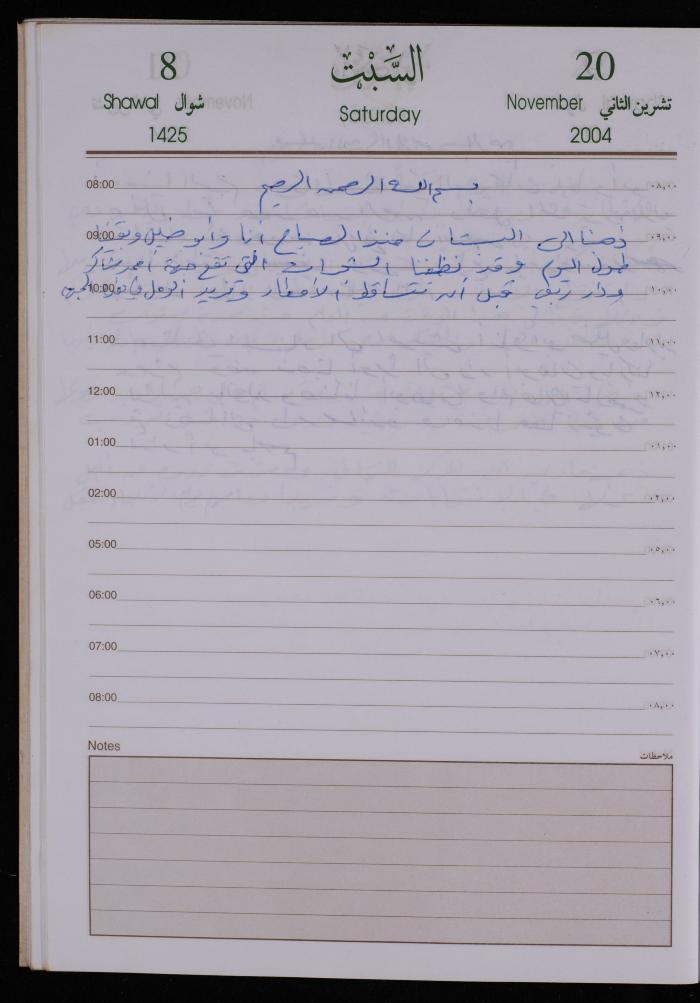 8 السَّبْت 20
Shawal شوال Saturday November تشرين الثاني
1425 2004
08:00 ٠٨,٠٠
بسم الله الرحمن الرحيم
09:00 ٠٩,٠٠
ذهبنا الى البستان منذ الصباح أنا وأبو خليل وبقينا
طول اليوم وقد نظفنا الشجرات التي تقع جهة أحمد شاكر
10:00 ١٠,٠٠
ودار قبل أن تتساقط الأمطار وتزيد الوحل
11:00 ١١,٠٠
12:00 ١٢,٠٠
01:00 ٠١,٠٠
02:00 ٠٢,٠٠
05:00 ٠٥,٠٠
06:00 ٠٦,٠٠
07:00 ٠٧,٠٠
08:00 ٠٨,٠٠
Notes ملاحظات